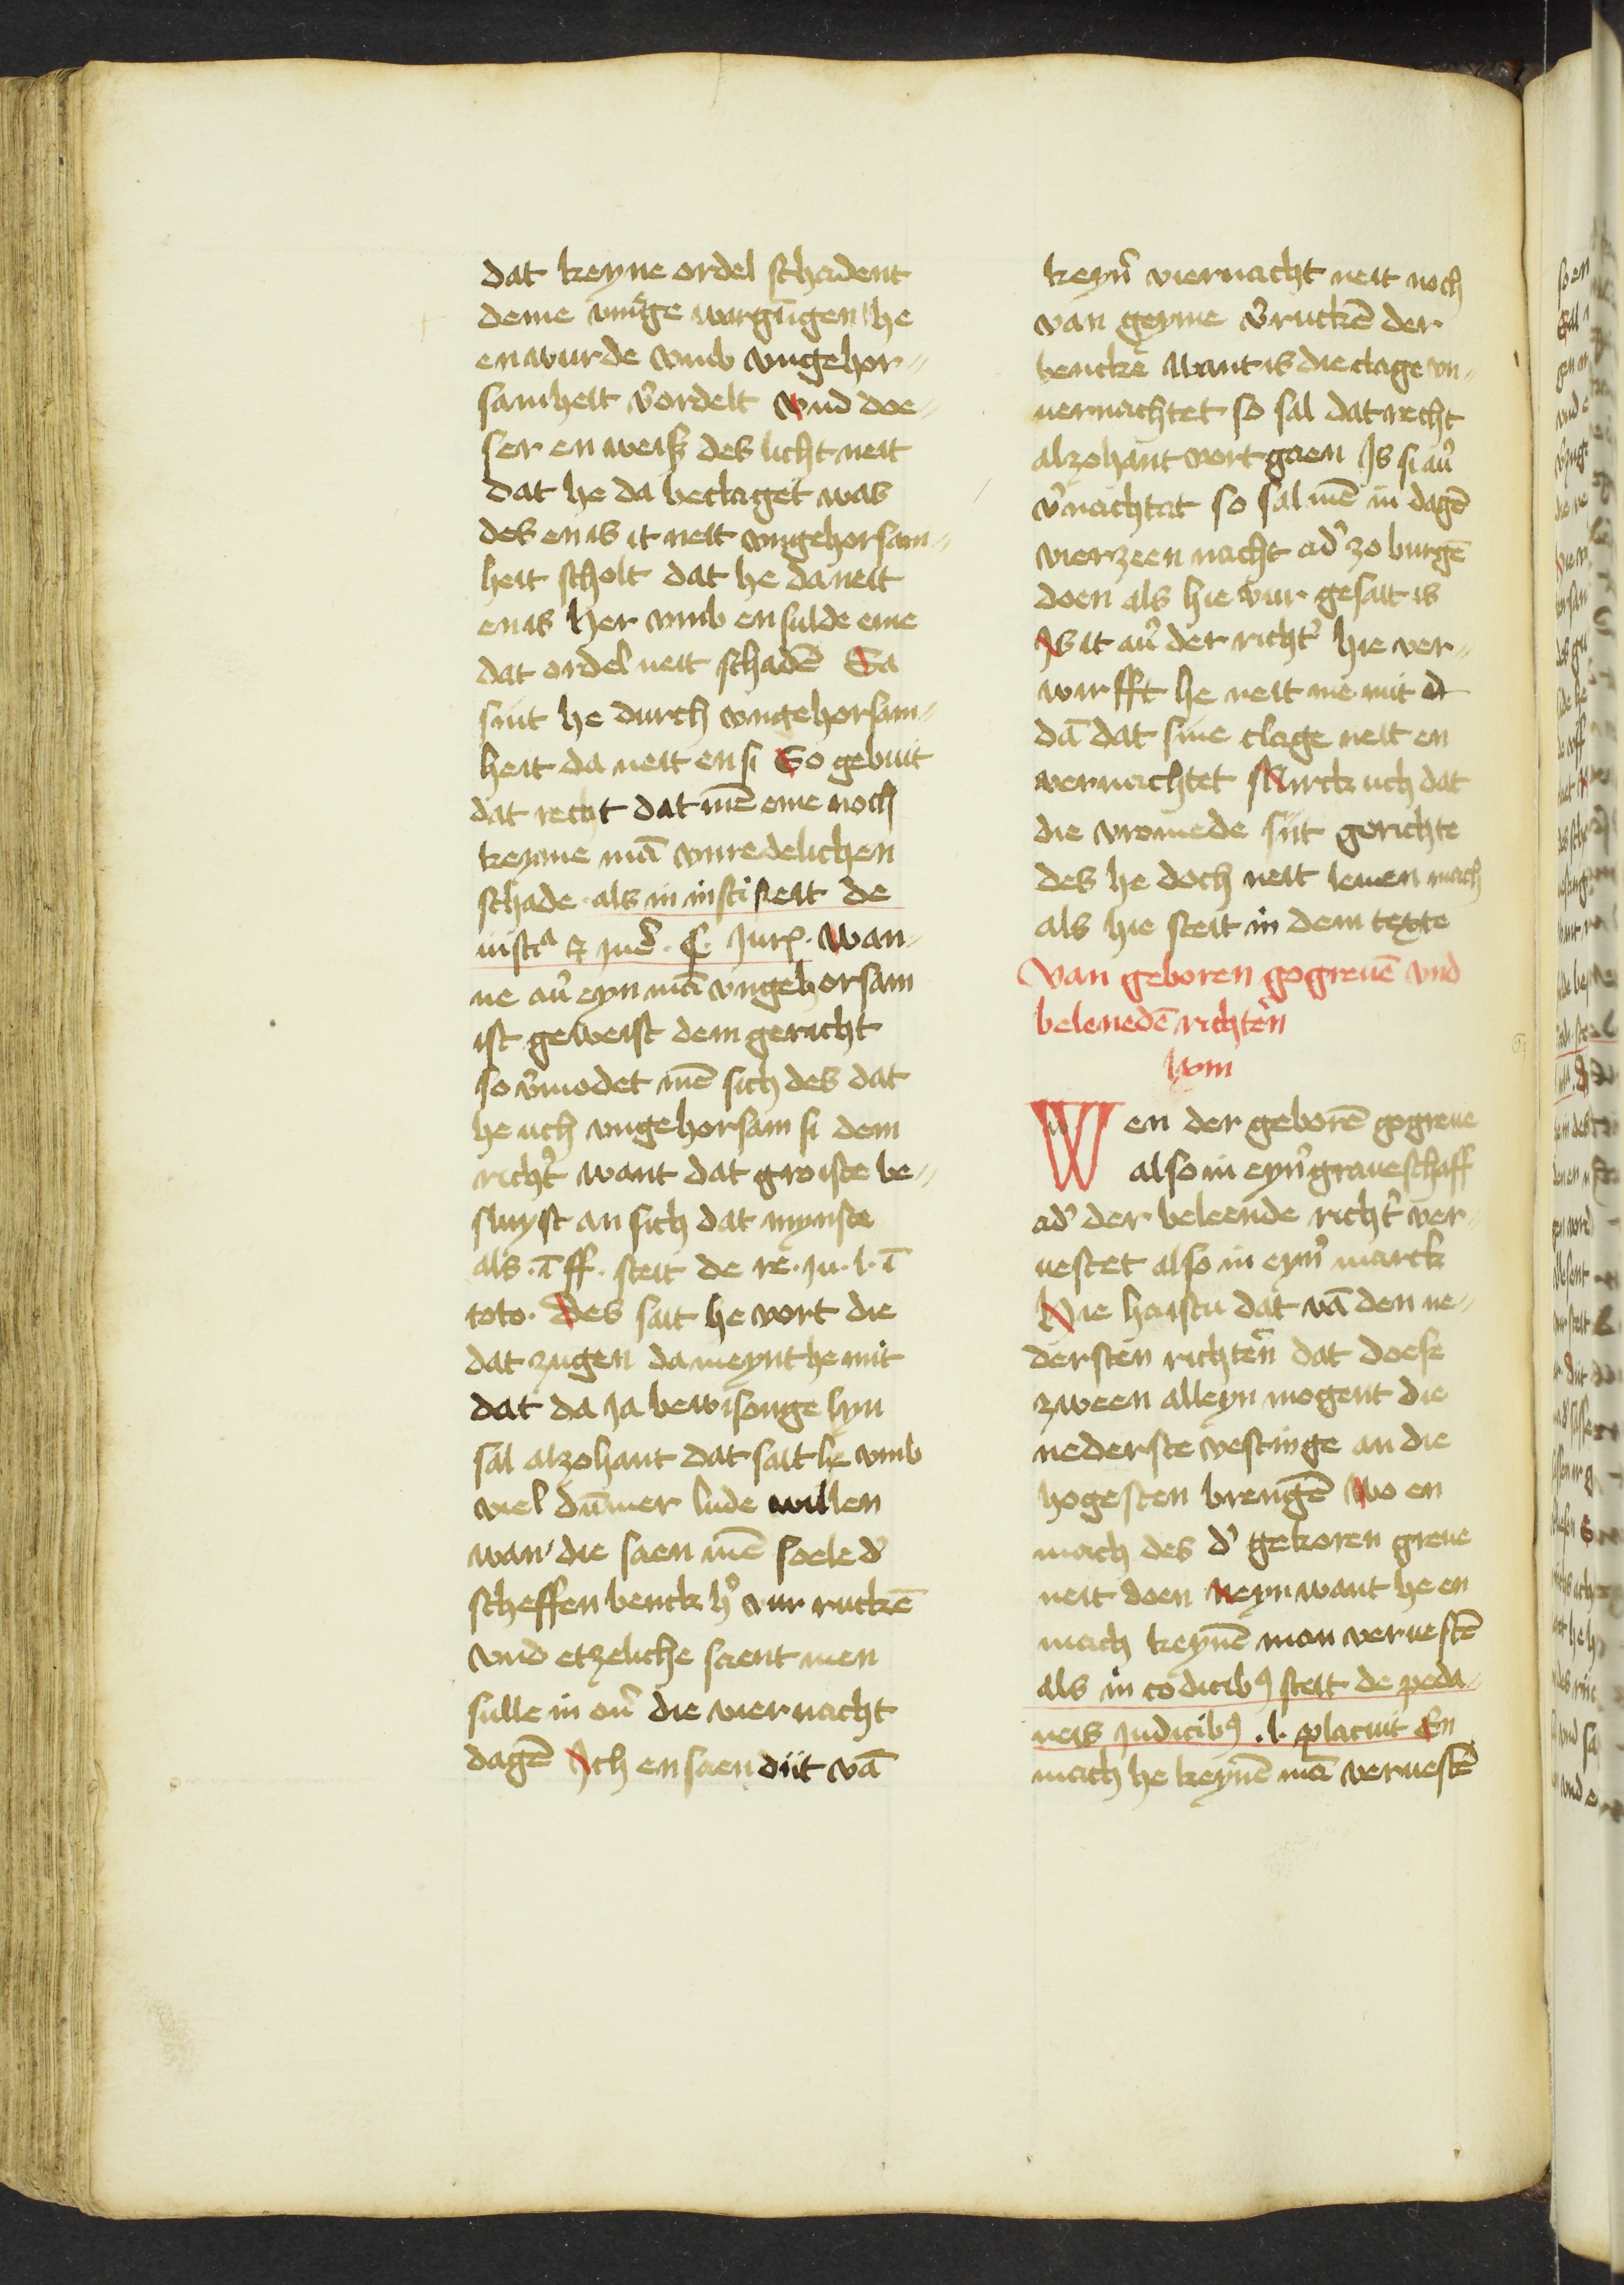 dat keyne ordel schadent
deme vmͤge wurgūgen he
en wurde vmb vngehor-
samheit v̓ordelt vnd doe-
ser en weiß des licht neit
dat he da beclaget was
des en is it neit vngehorsam-
heit scholt dat he da neit
en is her vmb en sulde eme
dat ordel neit schadē Ea
sint he durch vngehorsam-
heit da neit en si So gebuit
dat recht dat mē eme noch
keyme mā vnredelichen
schade als in insti steit de
iusta
wan-
ne au̓ eyn mā vngehorsam
ist geweist dem gericht
so v̓modet mē sich des dat
he uch vngehorsam si dem
richt̓ want dat groiste be-
sluyst an sich dat mynste
als ī ff. steit de re. iu. l. ī
toto. Des sait he vort die
dat zugen da meynt he mit
dat da ja bewisonge syn
sal alzohant dat sait he vmb
viel dum̄er lude willen
wan die saen mē soele d̓
scheffen benck h̓ vur ruckē
vnd etzeliche saent men
sulle in ou̓ die viernacht
dagē Ich en saen diit vā
keyn̓ viernacht neit noch
van geyme v̓ruckē der
bencke want is die clage vn-
uernachtet so sal dat recht
alzohant vort gaen Is si au̓
v̓nachtat so sal mē in dagē
vierzeen nacht ad̓ zo burgē
doen als hie vur gesatt is
Is it au̓ der richt̓ hie ver-
wirfft he neit me mit d
dā dat sine clage neit en
vernachtet Mirck uch dat
die vromede siit gerichte
des he doch neit lemen mach
als hie steit in dem texte
Van geboren gogreuē vnd
beleuedē richtēn
lviii
Wen der geborē gogreue
also in eyn̓ graueschaff
ad̓ der beleende richt̓ ver-
uestet also in eyn̓ marck
Hie haistu dat vā den ne-
dersten richtēn dat doese
zween alleyn mogent die
nederste vestinge an die
hogesten brengē Wo en
mach des d̓ gekoren greue
neit doen Neyn want he en
mach keynē man veruestē
als in codicibꝰ steit de peda-
neis judicibꝰ .l. placuit En
mach he keynē mā veruestē